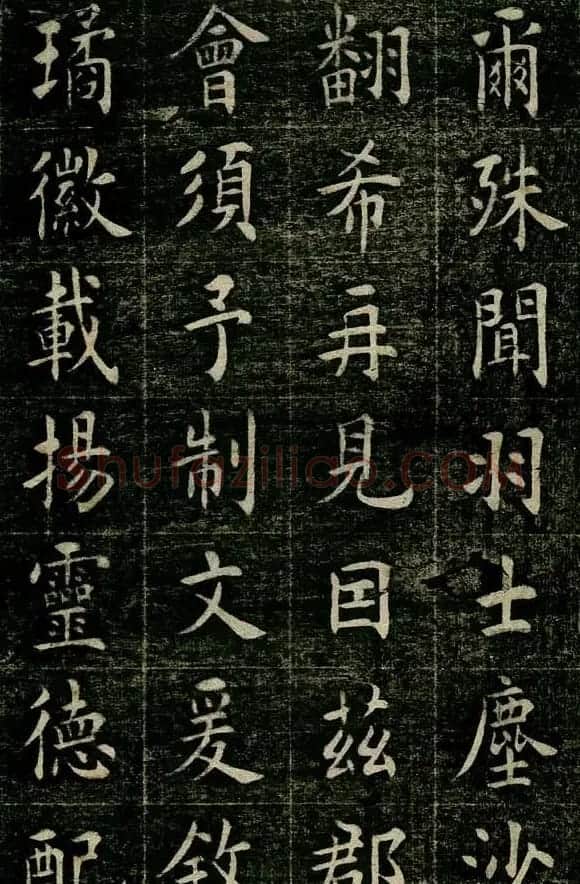 爾殊聞羽士塵沙
翻希再見囙茲郡
會須予制文爰敘
璚徽載揚靈德配
Shufaziliao.COM